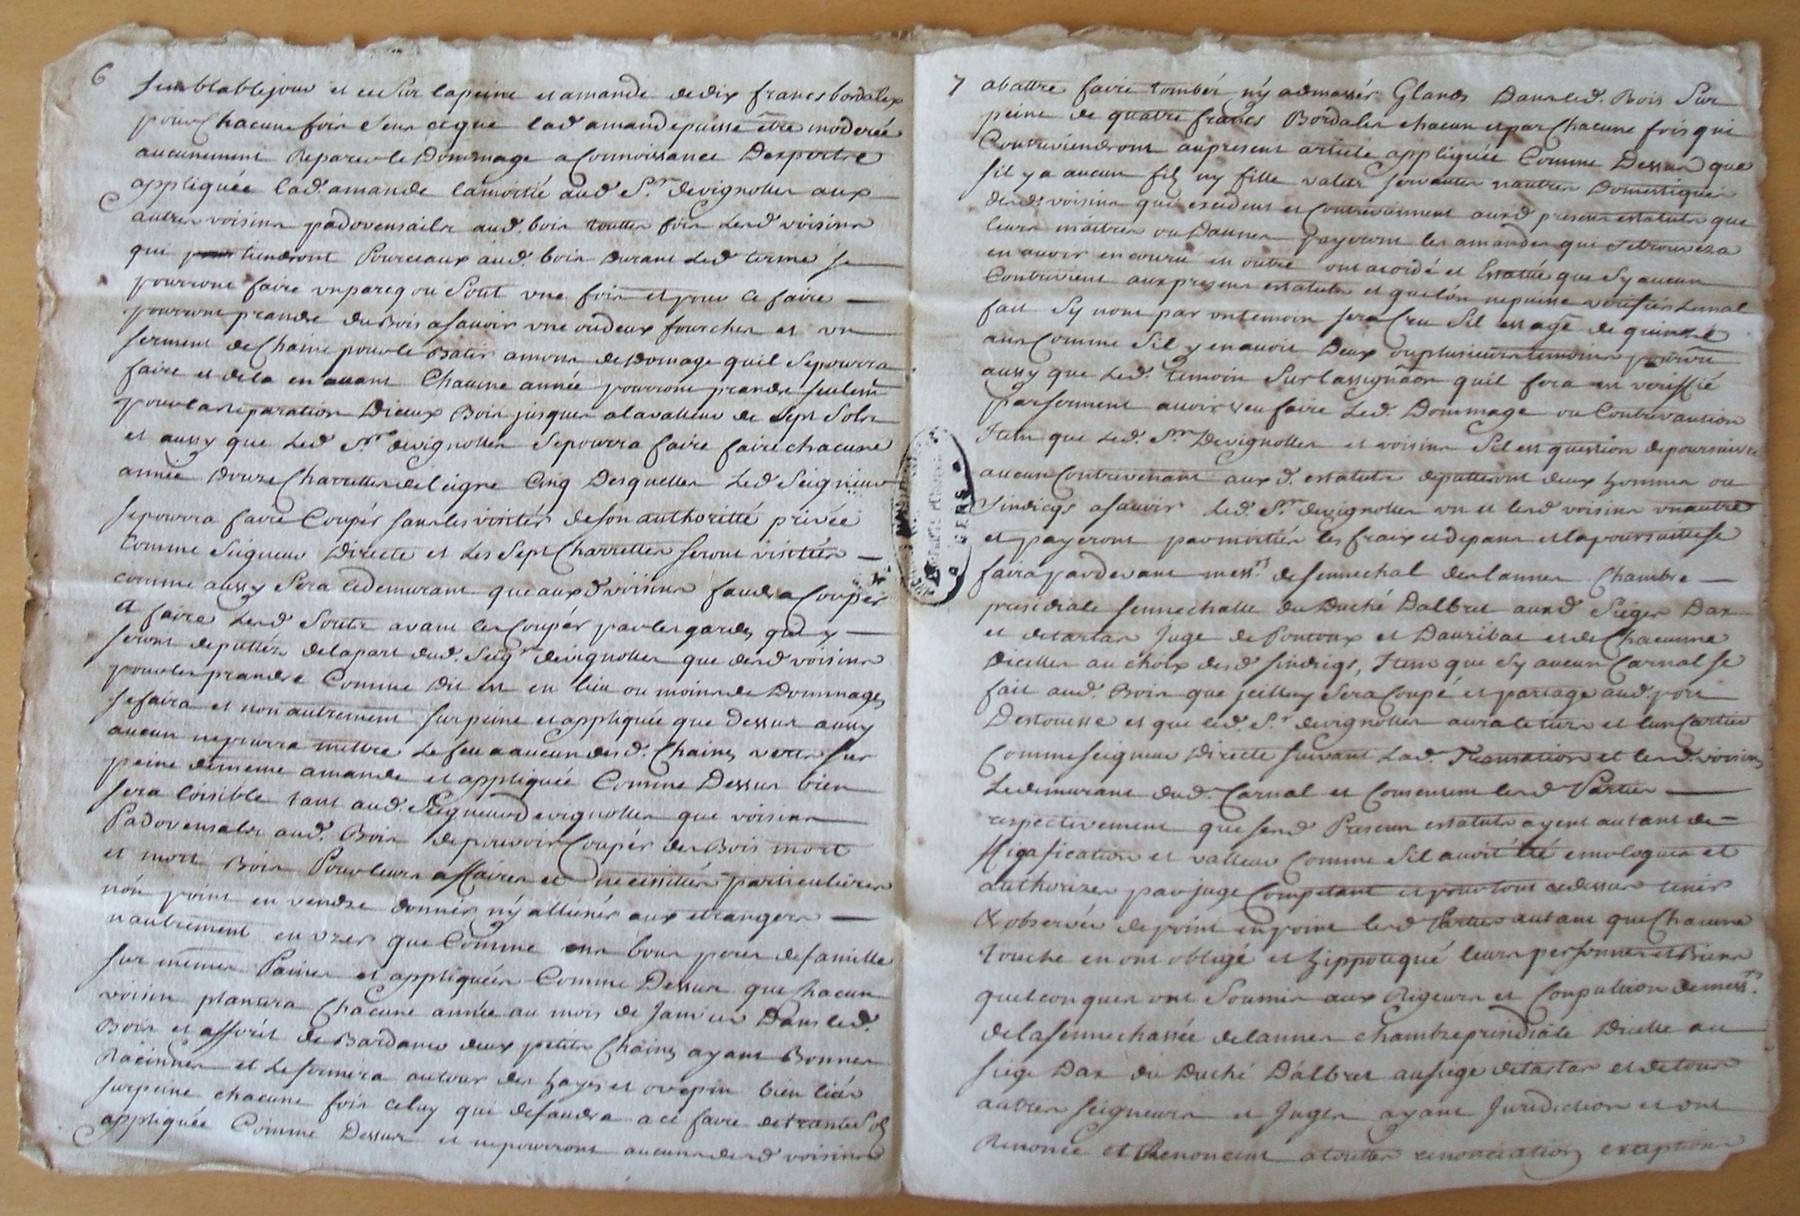 6
semblable jour et ce sur la peine et amande de dix francs bordalex
pour Chacune fois sens ce que lad. amande puisse être moderée
aucunement Reparer le Dommage a Connoissance Dexpertre
appliquée lad. amande la moitié aud. Sr. devignolles aux
autres voisins padovensails aud. bois touttes fois lesd voisins
qui tiendront Pourceaux aud. bois durant led. terme se
pourront faire un parcq ou Sout une fois et pour ce faire
pourront prandre du Bois asauoir une ou deux fourches et un
serment de Chaine pour le Batir amoins de domage quil se pourra
faire et de la en auant Chacune année pourront prandre seulemt
pour la reparation Dieux Bois jusques a la valleur de Sept Sols
et aussy que led. Sr. devignolles se pourra faire faire chacune
année Douze Charrettes de leigne Cinq Desquelles led. Seigneur
se pourra faire Coupér sans les visitér de son authoritté privée
Comme Seigneur Directe et les Sept Charrettes seront visittées
comme aussy sera ledemurant que aux d. voisins faudra Coupér
et faire lesd Souts avant les Coupér par les gardes qui y
seront deputtés de la part dud. Seigr. devignolles que desd voisins
pour les prandre Comme dit est en lieu ou moins de Dommages
se faira et non autrement sur peine et appliquée que dessus aussy
aucun ne pourra mettre le feu a aucun desd. Chaines verts sur
peine de meme amande et appliquée Comme Dessus bien
sera loisible tant aud. Seigneur devignolles que voisins
Padovensals aud. Bois de pouvoir Coupér du Bois mort
et mort Bois Pour leurs affaires et necessittés particulieres
nón point en vendre donnér n'y alliénér aux etrangers
n'autrement en uzer que Comme bons peres de famille
sur mêmes Paines et appliquées Comme Dessus que chacun
voisin plantera Chacune année au mois de Janvier Dans led.
Bois et afforêt de Bardanes deux petits Chaines ayant Bonnes
Racinnes et le fermera autour des hayes et ovepin bien liés
sur peine chacune fois celuy qui defaudra a ce faire de trante Sols
appliquée Comme Dessus et ne pourront aucuns desd voisins
7
abattre faire tombér n'y admassér Glands Dans led. Bois sur
peine de quatre francs Bordales chacun et par Chacune fois qui
Contreviendront au present article appliquée Comme Dessus que
sil y a aucun fils ny fille valets servantes n'autres Domestiques
desd. voisins qui excedent et Contreviennent auxd presens estatuts que
leurs maitres ou Dames payeront les amandes qui se trouvera
en auoir encouru en outre ont acordé et Estatué que sy aucun
Contrevient aux presens estatuts et quelon ne puisse verifier le mal
fait sy nom par un temoin sera Cru sil est agé de quinze
ans Comme sil y en auoit Deux ou plusieurs temoins pourvu
aussy que led. temoin sur lassignâon quil fera en veriffié
par serment auoir veu faire led. Dommage ou Contrevantion
Item que led. Sr. Devignolles et voisins sil est question de poursuivre
aucun Contrevenant auxd. estatuts deputteront deux hommes ou
Sindicqs asauoir led. Sr. devignolles un et lesd voisins un autre
et payeront par moitiés les fraix et depans et la poursuitte se
faira pardevant messrs. de sennechal des lannes Chambre
presidiale sennechalle du Duché Dalbret auxd Sieges Dax
et de tartas Juge de Pontoux et Dauribat et de Chacunne
Dicelles au choix desd sindiqs, Item que sy aucun Carnal se
fait aud. Bois que jcelluy sera Coupé et partage aud. port
Destouesse et que led. Sr. devignolles aura le tiers et lun Cartier
Comme seigneur Directe suivant lad. Transation et lesd. voisins
Ledemurant dud. Carnal et Consentent lesd Parties
respectivement que send Presens estatuts ayent autant de
et valleur Comme sil avoit été emologues et
authorizes par juge Competant et pour tout cedessus tenir
& observér de point en point lesd Parties autant que Chacune
touche en ont obligé et hippotequé leurs personnes et Biens
quelconques ont Soumis aux Rigeurs et Conpultion de messrs.
de la sennechassée de lannes chambre presidiale Dicelle au
siege Dax du Duché Dalbret au siege de tartas et de tous
autres seigneurs et Juges ayant Juridiction et ont
Renoncé et Renoncent a touttes renonciations exceptions
GERS